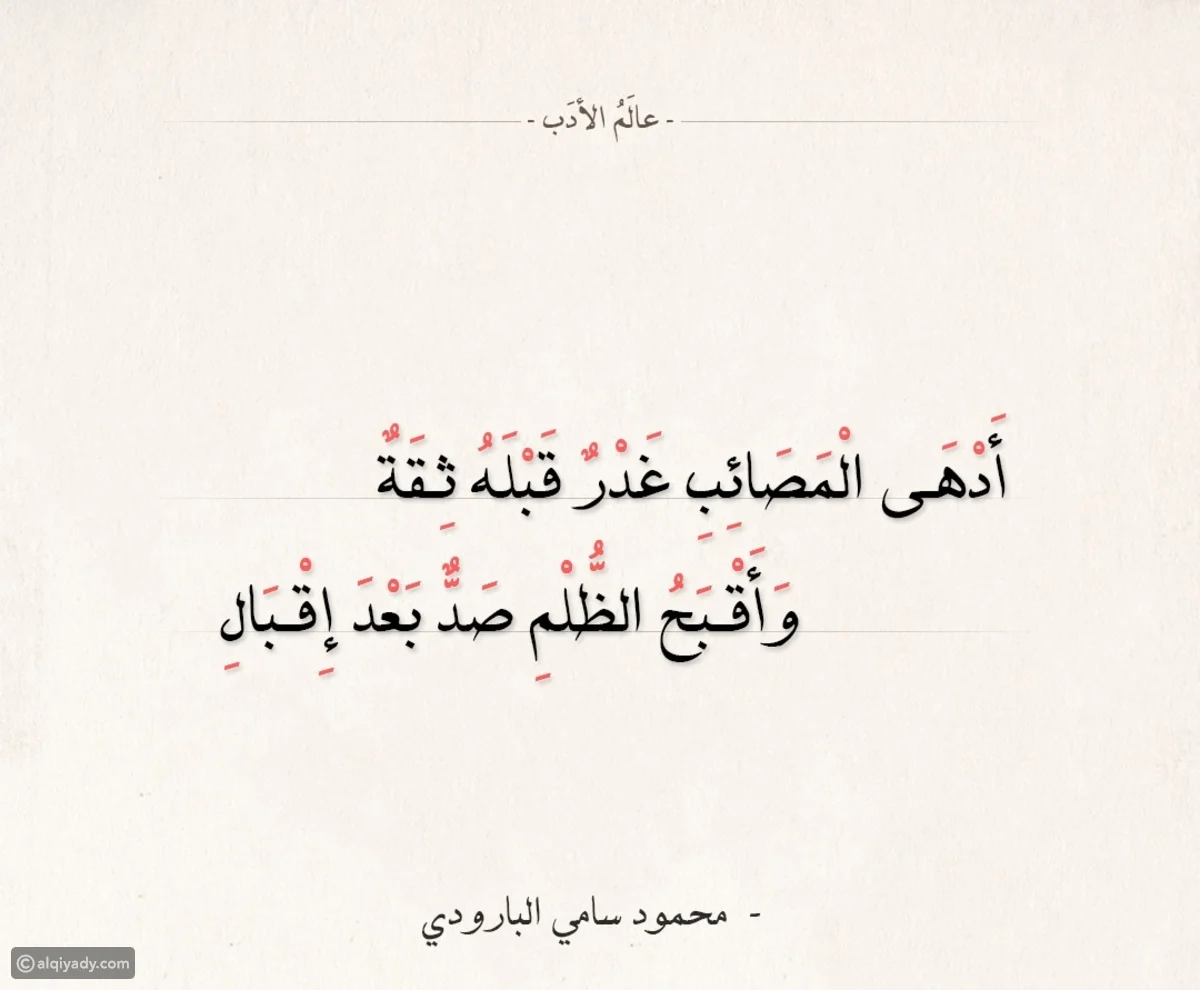 - عالَمُ الأدَب -
أَدْهَى الْمَصَائِبِ غَدْرٌ قَبْلَهُ ثِقَةٌ
وَأَقْبَحُ الظُّلْمِ صَدٌّ بَعْدَ إِقْبَالِ
- محمود سامي البارودي
©alqiyady.com